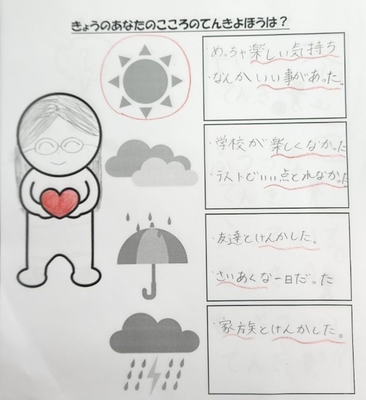 きょうのあなたのこころのてんきよほうは？
・めっちゃ楽しい気持ち
・なんかいい事があった。
・学校が楽しくなかった
・テストでいい点とれなかった
・友達とけんかした。
・さいあくな一日だ。った
・家族とけんかした。